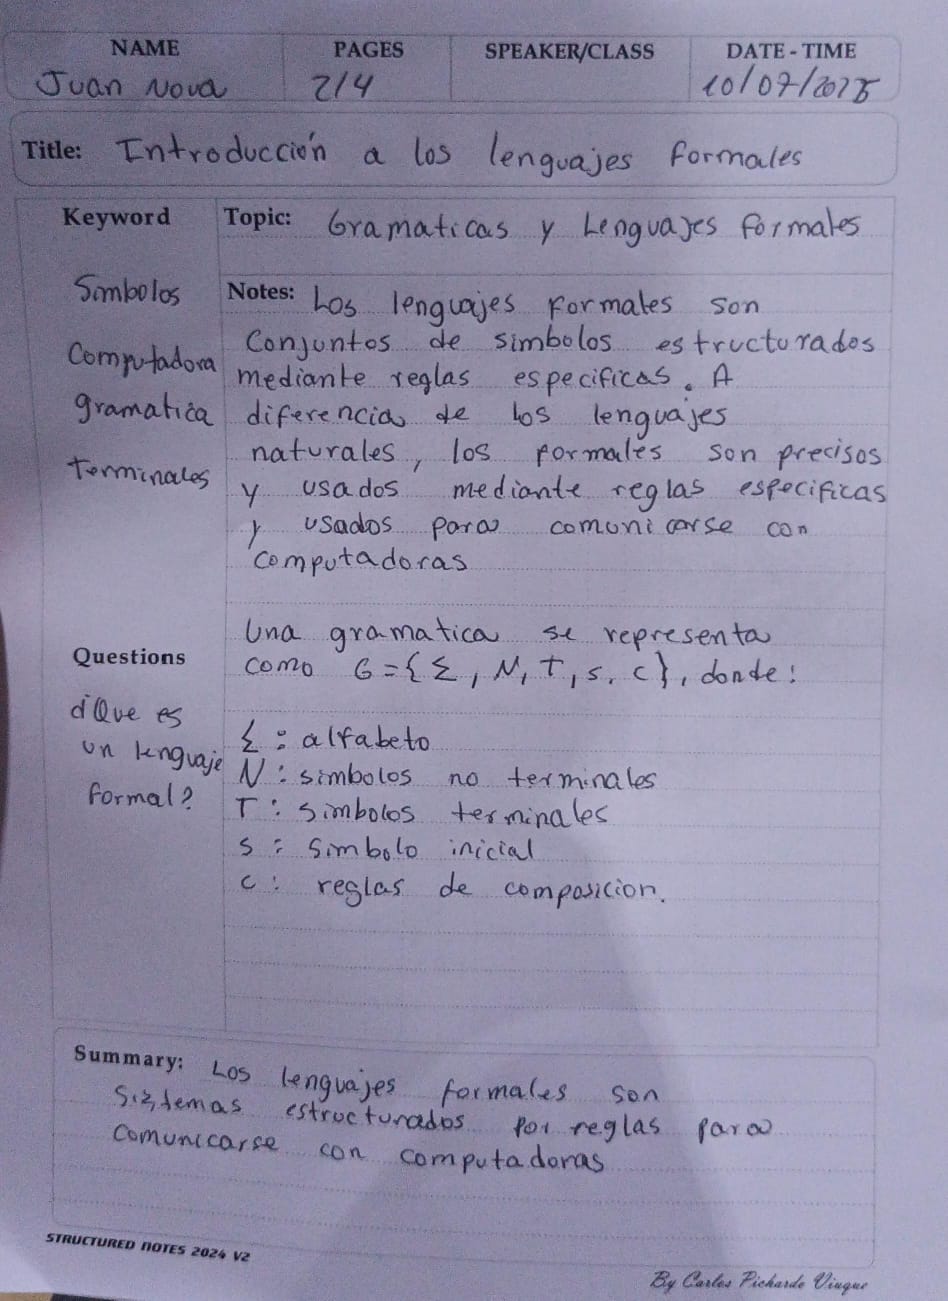 NAME PAGES SPEAKER/CLASS DATE - TIME
Juan Nova 2/4 10/07/2025
Title: Introducción a los lenguajes formales
Keyword
Simbolos
Computadora
gramatica
terminales
Topic: Gramaticas y Lenguajes formales
Notes: Los lenguajes formales son
Conjuntos de simbolos estructurados
mediante reglas especificas. A
diferencia de los lenguajes
naturales, los formales son precisos
y usados mediante reglas especificas
y usados para comunicarse con
computadoras
Una gramatica se representa
como G={Σ, N, T, s, c}, donde:
Σ : alfabeto
N : simbolos no terminales
T : simbolos terminales
s : simbolo inicial
c : reglas de composicion.
Questions
¿Que es
un lenguaje
formal?
Summary: Los lenguajes formales son
Sistemas estructurados por reglas para
comunicarse con computadoras
STRUCTURED NOTES 2024 V2
By Carlos Pichardo Viuque